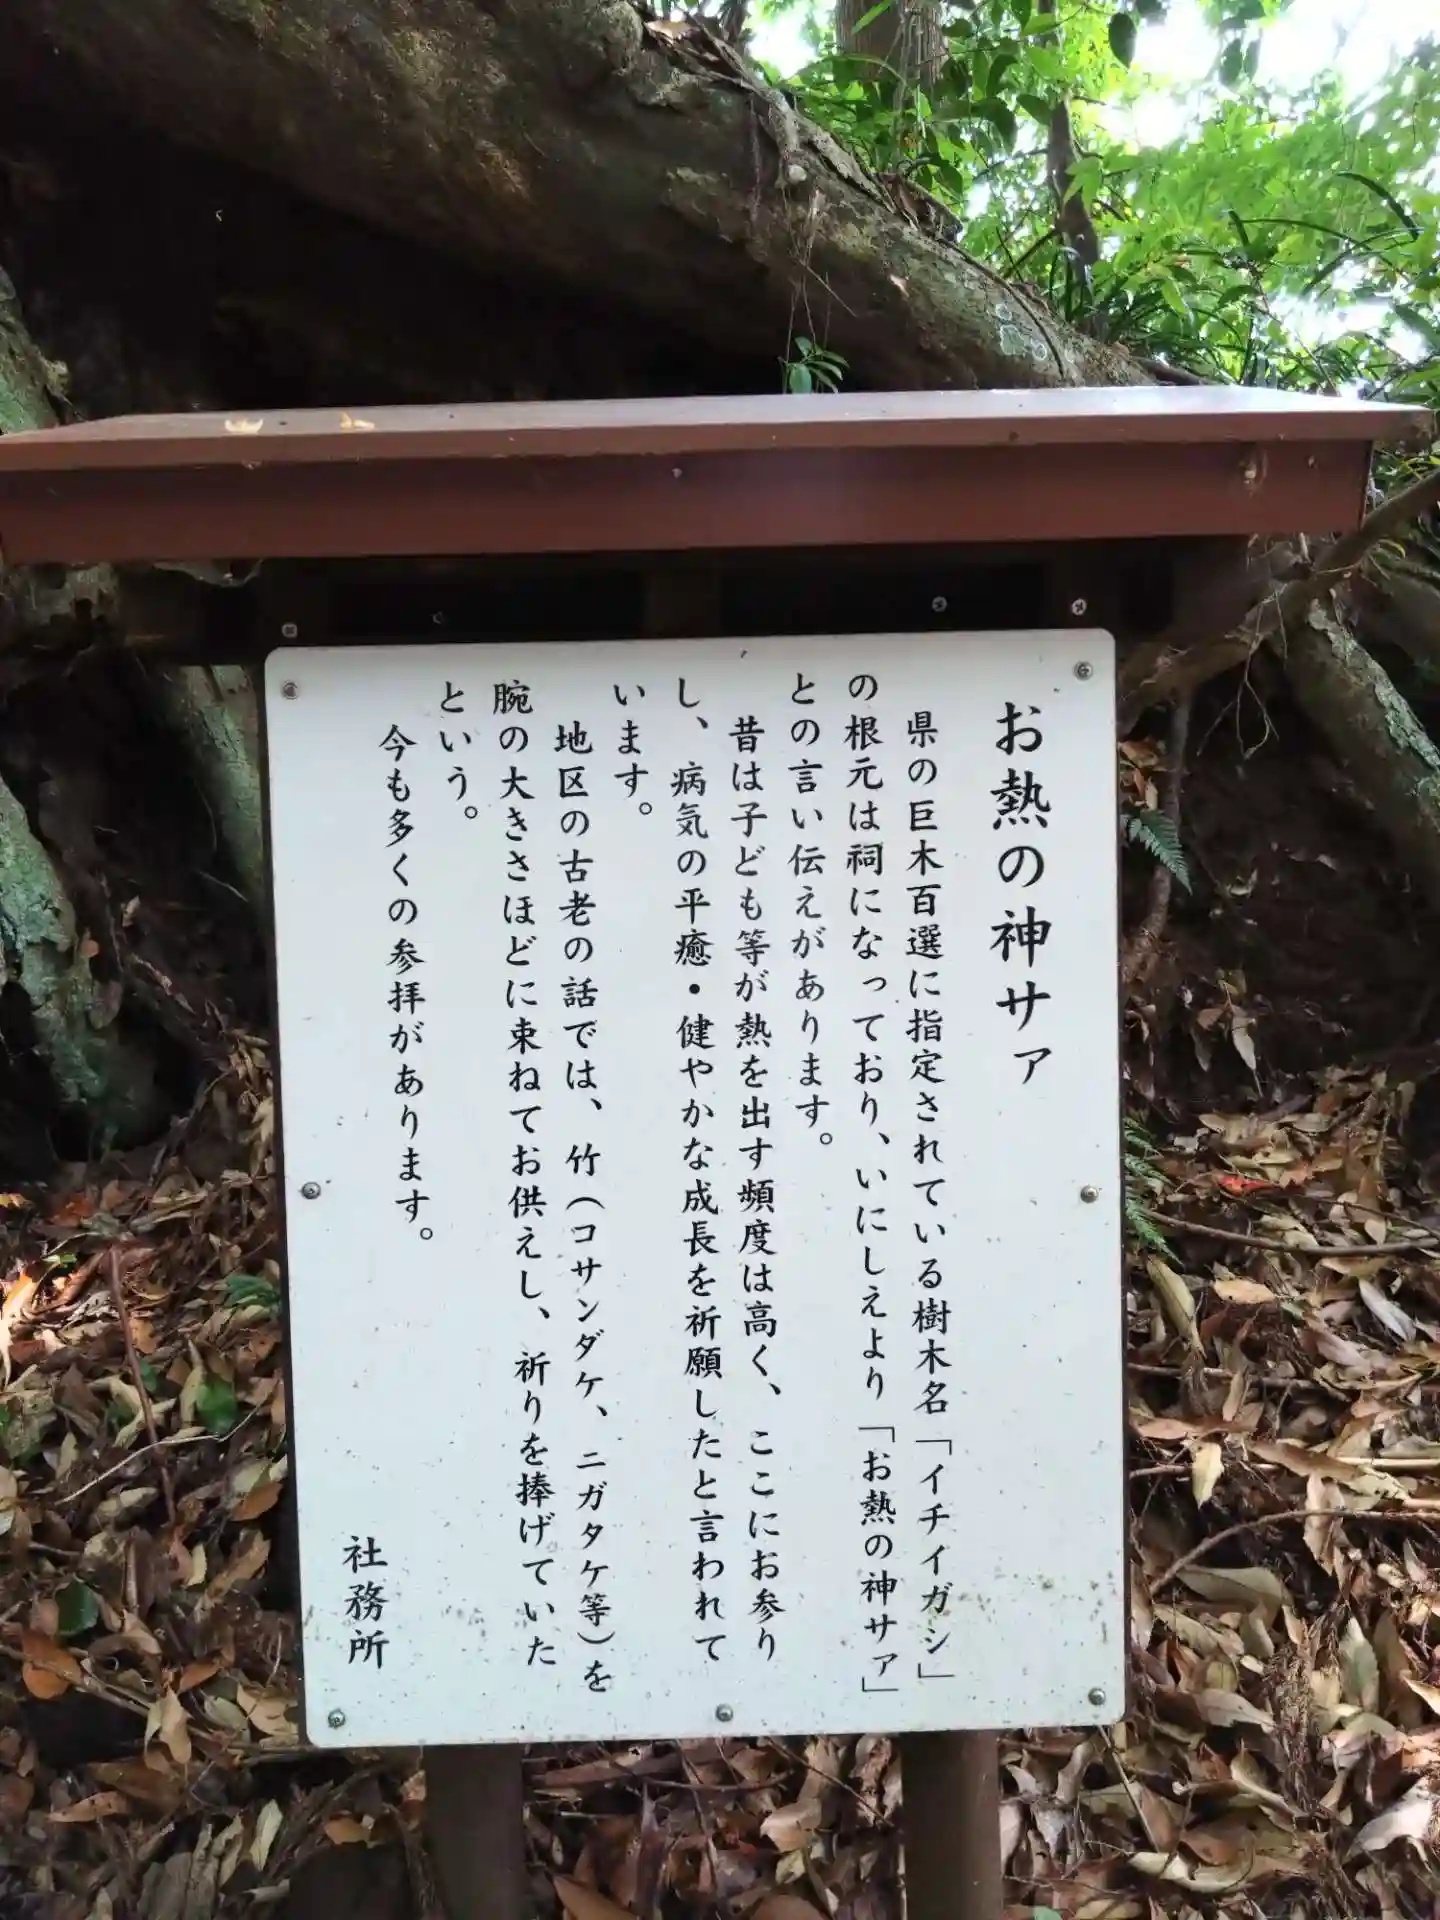 お熱の神サァ
県の巨木百選に指定されている樹木名「イチイガシ」
の根元は祠になっており、いにしえより「お熱の神サァ」
との言い伝えがあります。
昔は子ども等が熱を出す頻度は高く、ここにお参り
し、病気の平癒・健やかな成長を祈願したと言われて
います。
地区の古老の話では、竹（コサンダケ、ニガタケ等）を
腕の大きさほどに束ねてお供えし、祈りを捧げていた
という。
今も多くの参拝があります。
社務所